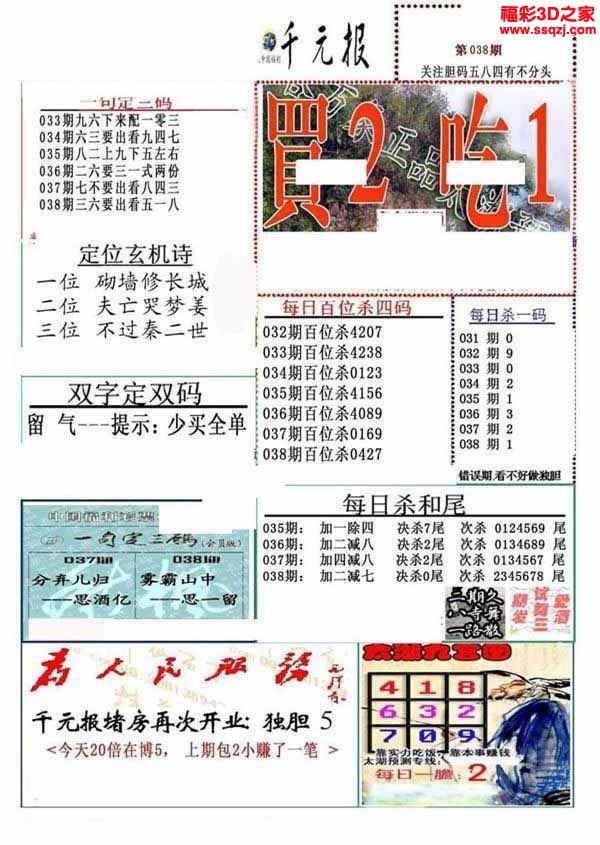 福彩3D之家
www.ssqzj.com
千元报
第038期
关注胆码五八四有不分头
一句定三码
033期九六下来配一零三
034期六三要出看九四七
035期八二上九下五左右
036期二六要三一式两份
037期七不要出看八四三
038期三六要出看五一八
買2 吃1
定位玄机诗
一位 砌墙修长城
二位 夫亡哭梦姜
三位 不过秦二世
每日百位杀四码
032期百位杀4207
033期百位杀4238
034期百位杀0123
035期百位杀4156
036期百位杀4089
037期百位杀0169
038期百位杀0427
每日杀一码
031 期 0
032 期 9
033 期 0
034 期 2
035 期 1
036 期 3
037 期 2
038 期 1
错误期,看不好做独胆
双字定双码
留 气---提示:少买全单
每日杀和尾
035期: 加一除四 决杀7尾 次杀 0124569 尾
036期: 加二减八 决杀2尾 次杀 0134689 尾
037期: 加四减八 决杀2尾 次杀 0134567 尾
038期: 加二减七 决杀0尾 次杀 2345678 尾
中国福利彩票
一句定三码(会员版)
037期 038期
分弃儿归 雾霸山中
---思酒亿 ---思一留
为人民服务
千元报堵房再次开业: 独胆 5
<今天20倍在博5, 上期包2小赚了一笔 >
太湖九宫图
4 1 8
6 3 2
7 0 9
靠实力吃饭,靠本事赚钱
太湖预测专线:
每日一胆: 2